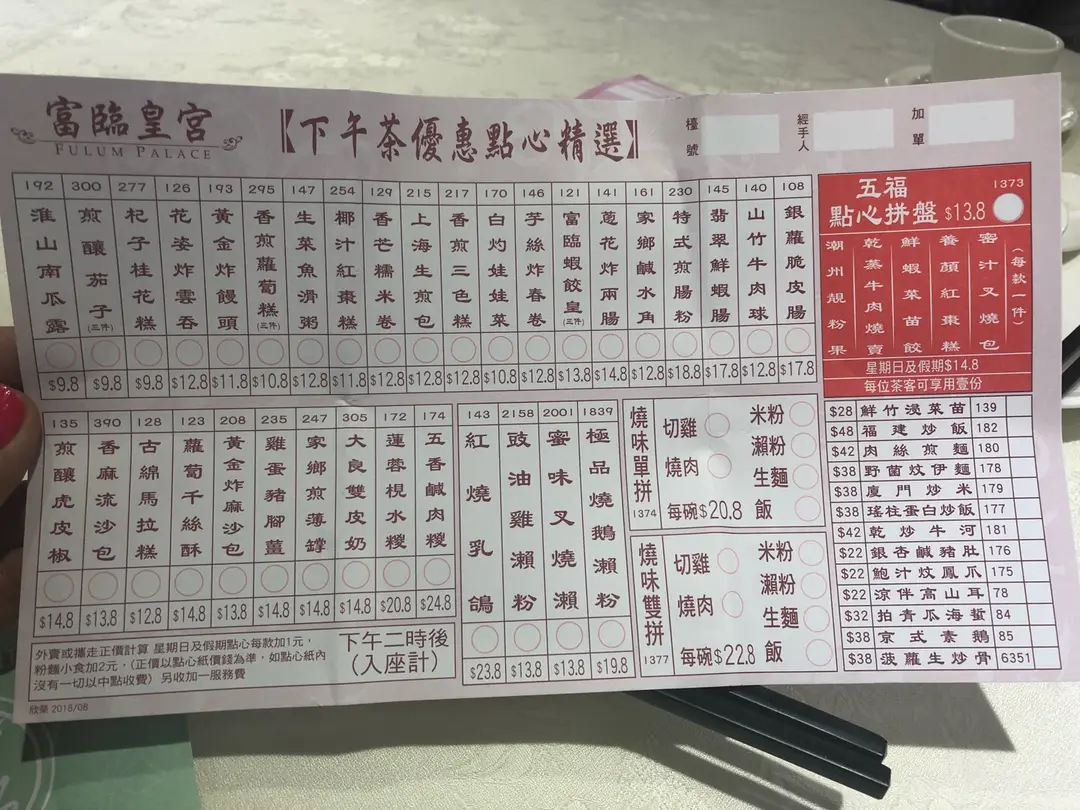 富臨皇宮
FULUM PALACE
【下午茶優惠點心精選】
檯號
經手人
加單
192 淮山南瓜露 $9.8
300 煎釀茄子(三件) $9.8
277 杞子桂花糕 $9.8
126 花姿炸雲吞 $12.8
193 黃金炸饅頭 $11.8
295 香煎蘿蔔糕(三件) $10.8
147 生菜魚滑粥 $12.8
254 椰汁紅棗糕 $11.8
129 香芒糯米卷 $12.8
215 上海生煎包 $12.8
217 香煎三色糕 $12.8
170 白灼娃娃菜 $10.8
146 芋絲炸春卷 $12.8
121 富臨蝦餃皇(三件) $13.8
141 蔥花炸兩腸 $14.8
161 家鄉鹹水角 $12.8
230 特式煎腸粉 $18.8
145 翡翠鮮蝦腸 $17.8
140 山竹牛肉球 $12.8
108 銀蘿脆皮腸 $17.8
五福
點心拼盤 $13.8
1373
潮州靚粉果
乾蒸牛肉燒賣
鮮蝦菜苗餃
養顏紅棗糕
密汁叉燒包
(每款一件)
星期日及假期$14.8
每位茶客可享用壹份
135 煎釀虎皮椒 $14.8
390 香麻流沙包 $13.8
128 古綿馬拉糕 $12.8
123 蘿蔔千絲酥 $14.8
208 黃金炸麻沙包 $13.8
235 雞蛋豬腳薑 $14.8
247 家鄉煎薄罉 $14.8
305 大良雙皮奶 $14.8
172 蓮蓉梘水糉 $20.8
174 五香鹹肉糉 $24.8
143 紅燒乳鴿 $23.8
2158 豉油雞瀨粉 $13.8
2001 蜜味叉燒瀨 $13.8
1839 極品燒鵝瀨粉 $19.8
燒味單拼
1374
切雞 米粉
瀨粉
燒肉 生麵
每碗$20.8 飯
燒味雙拼
1377
切雞 米粉
瀨粉
燒肉 生麵
每碗$22.8 飯
$28 鮮竹淺菜苗 139
$48 福建炒飯 182
$42 肉絲煎麵 180
$38 野菌炆伊麵 178
$38 廈門炒米 179
$38 瑤柱蛋白炒飯 177
$42 乾炒牛河 181
$22 銀杏鹹豬肚 176
$22 鮑汁炆鳳爪 175
$22 涼伴高山耳 78
$32 拍青瓜海蜇 84
$38 京式素鵝 85
$38 菠蘿生炒骨 6351
外賣或攜走正價計算 星期日及假期點心每款加1元，
粉麵小食加2元，(正價以點心紙價錢為準，如點心紙內
沒有一切以中點收費）另收加一服務費
下午二時後
(入座計)
欣榮 2018/08